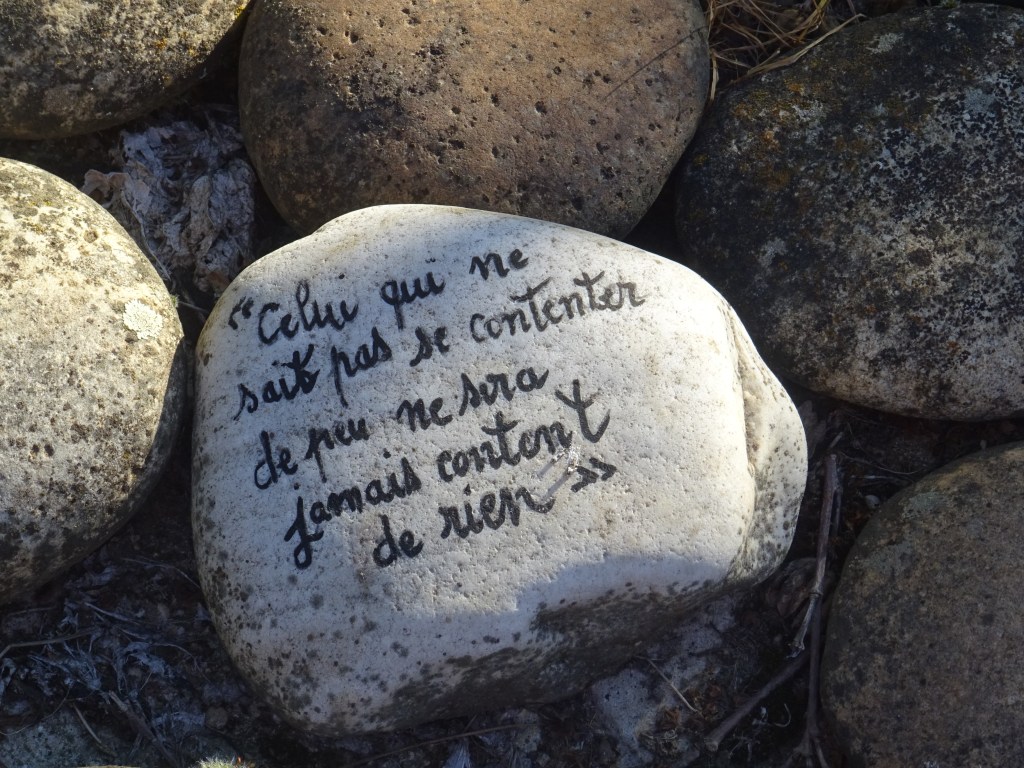 “Celui qui ne
sait pas se contenter
de peu ne sera
jamais content
de rien »